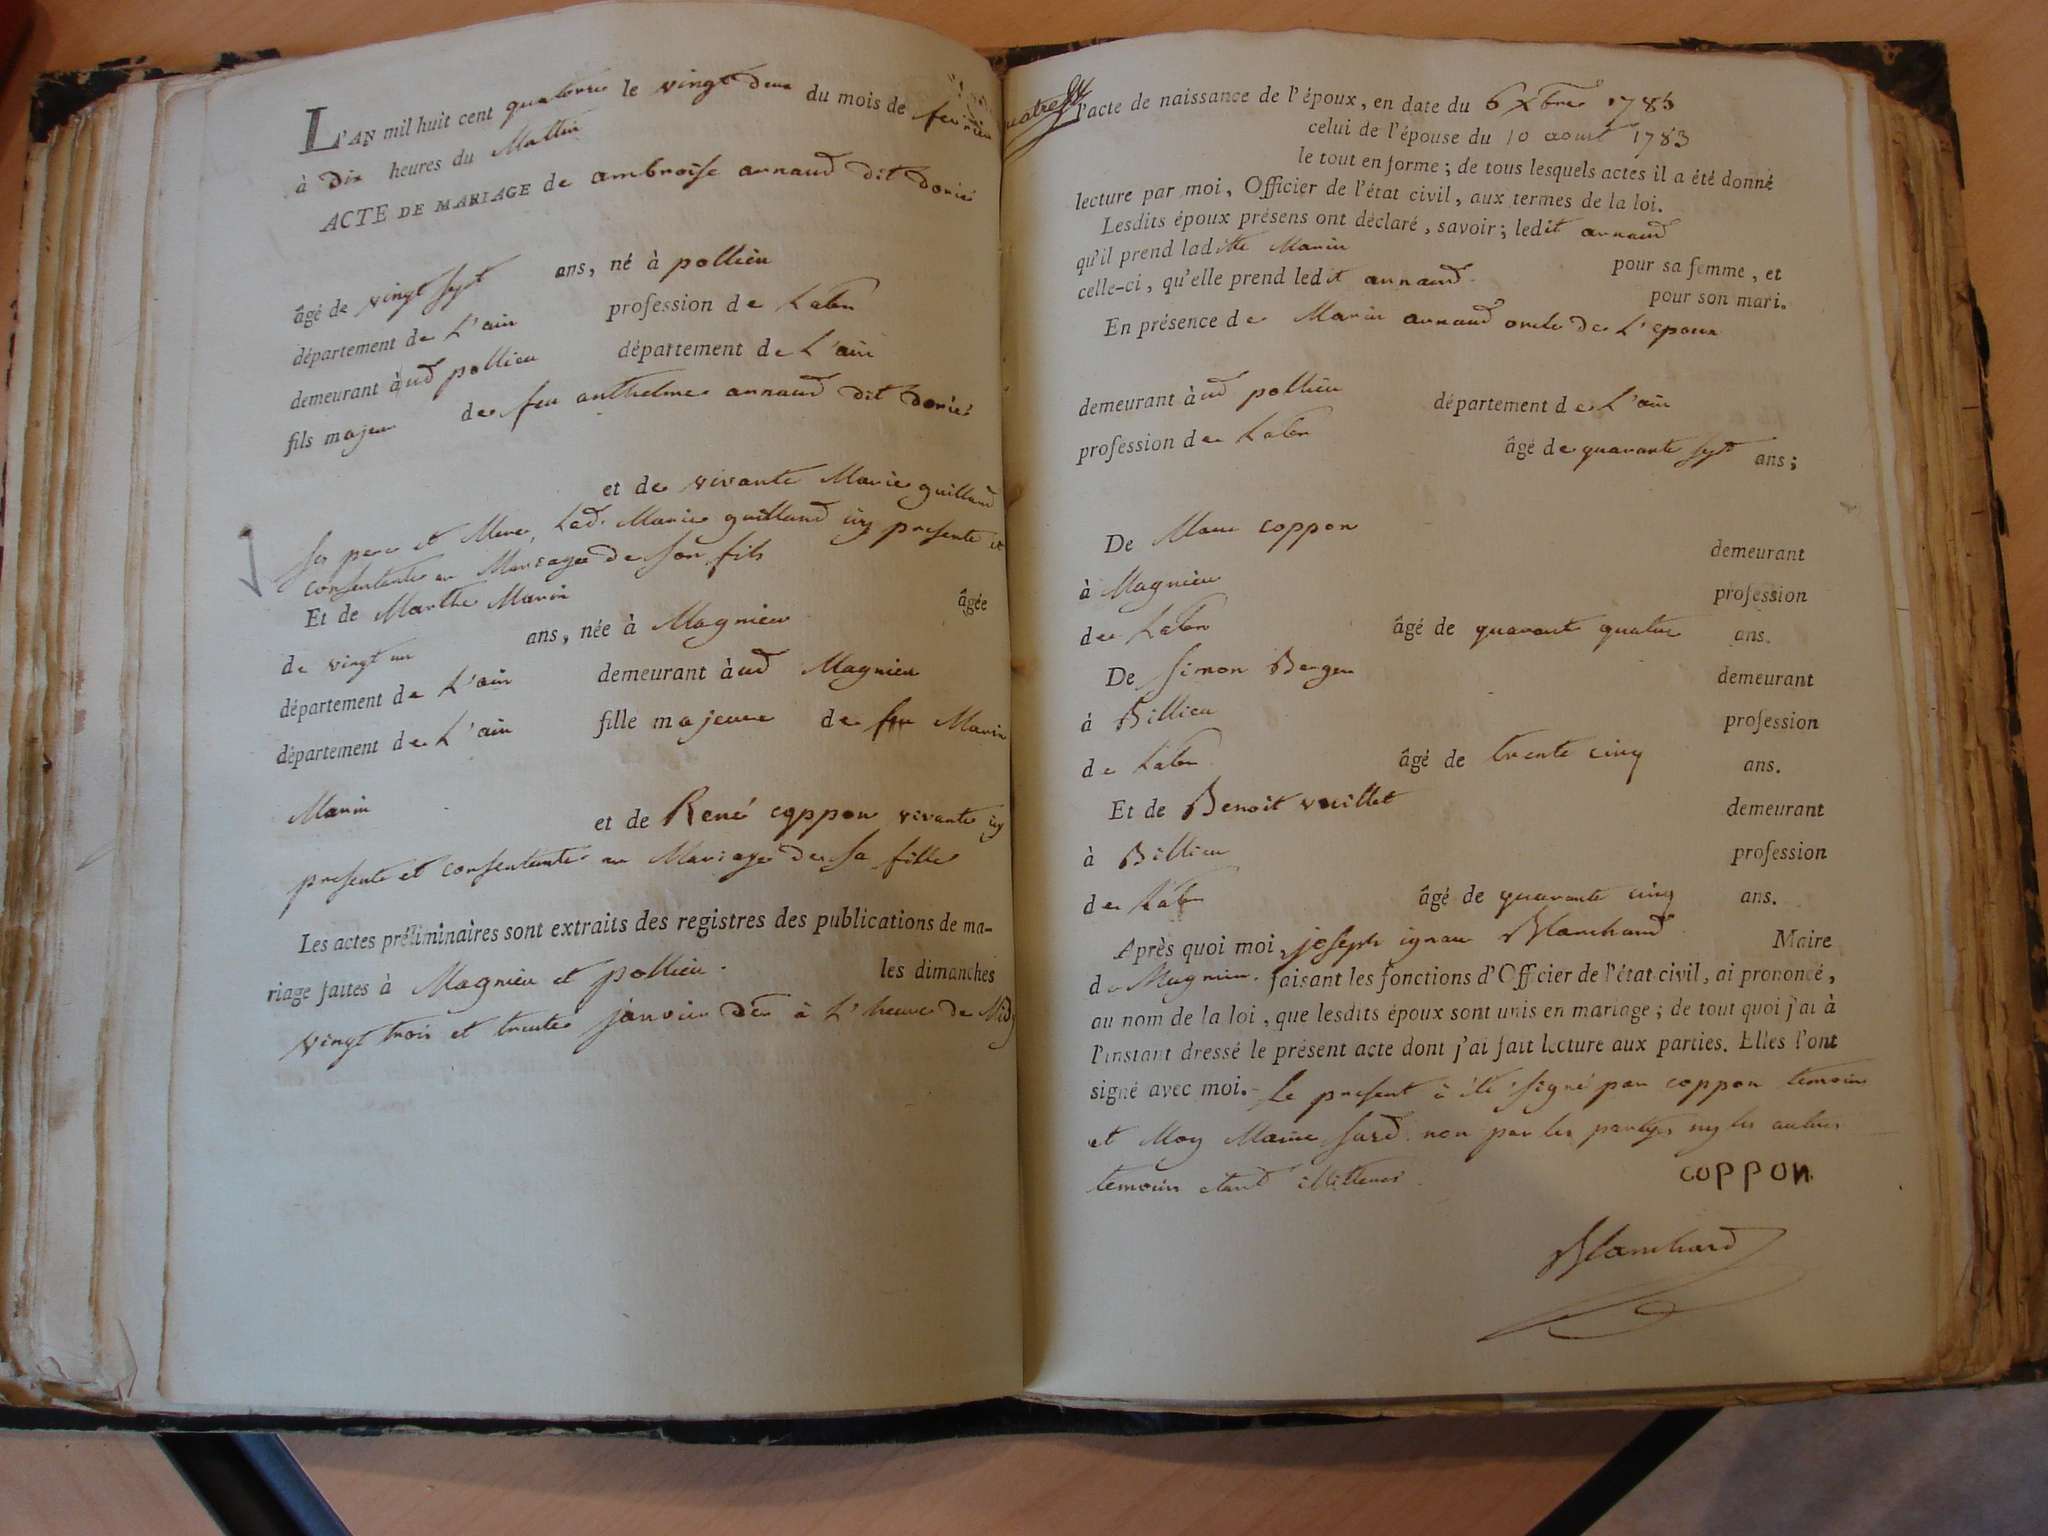 L'AN mil huit cent quatorze le vingt deux du mois de fevrier
à dix heures du Mattin
ACTE DE MARIAGE de ambroise arnaud dit dorié
âgé de vingt sept ans, né à pollieu
département de L'ain profession de Labr
demeurant àud pollieu département de L'ain
fils majeur de feu anthelme arnaud dit dorié
et de vivante Marie guilland
ses pere et Mere, Lad. Marie guilland icy presente et
consentente au Mariage de son fils
Et de Marthe Marin âgée
de vingt un ans, née à Magnieu
département de L'ain demeurant àud Magnieu
département de L'ain fille majeure de feu Marin
Marin et de René coppon vivante icy
presente et consentente au Mariage de sa fille
Les actes préliminaires sont extraits des registres des publications de ma-
riage faites à Magnieu et pollieu. les dimanches
vingt trois et trente janvier à L'heure de Midy
l'acte de naissance de l'époux, en date du 6 Xbre 1786
celui de l'épouse du 10 aoust 1783
le tout en forme ; de tous lesquels actes il a été donné
lecture par moi, Officier de l'état civil, aux termes de la loi.
Lesdits époux présens ont déclaré, savoir ; ledit arnaud
qu'il prend laditte Marin pour sa femme, et
celle-ci, qu'elle prend ledit arnaud. pour son mari.
En présence de Marin arnaud oncle de L'epoux
demeurant àud pollieu département de L'ain
profession de Labr âgé de quarante sept ans ;
De coppon demeurant
à Magnieu profession
de Labr âgé de quarante quatre ans.
De Simon Berger demeurant
à Billieu profession
de Labr âgé de trente cinq ans.
Et de Benoit vuillet demeurant
à Billieu profession
de Labr âgé de quarante cinq ans.
Après quoi moi, joseph ignace Blanchard Maire
de Magnieu. faisant les fonctions d'Officier de l'état civil, ai prononcé,
au nom de la loi, que lesdits époux sont unis en mariage ; de tout quoi j'ai à
l'instant dressé le présent acte dont j'ai fait lecture aux parties. Elles l'ont
signé avec moi. - Le present à été signé par coppon temoin
et Moy Maire susd. non par les partyes ny les autres
temoins etant illitterés.
coppon
Blanchard